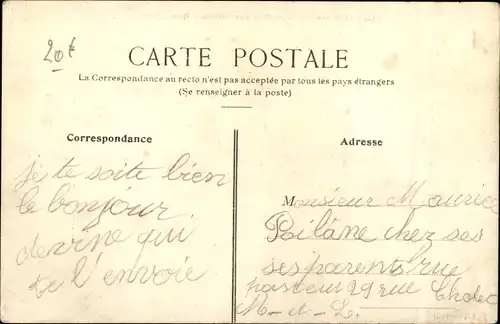 20f
CARTE POSTALE
La Correspondance au recto n'est pas acceptée par tous les pays étrangers
(Se renseigner à la poste)
Correspondance
je te soite bien
le bonjour
devine qui
te l'envoie
Adresse
Monsieur Mauric
Poilâne chez ses
ses parents rue
pasteur 29 rue Cholet
M-et-L.